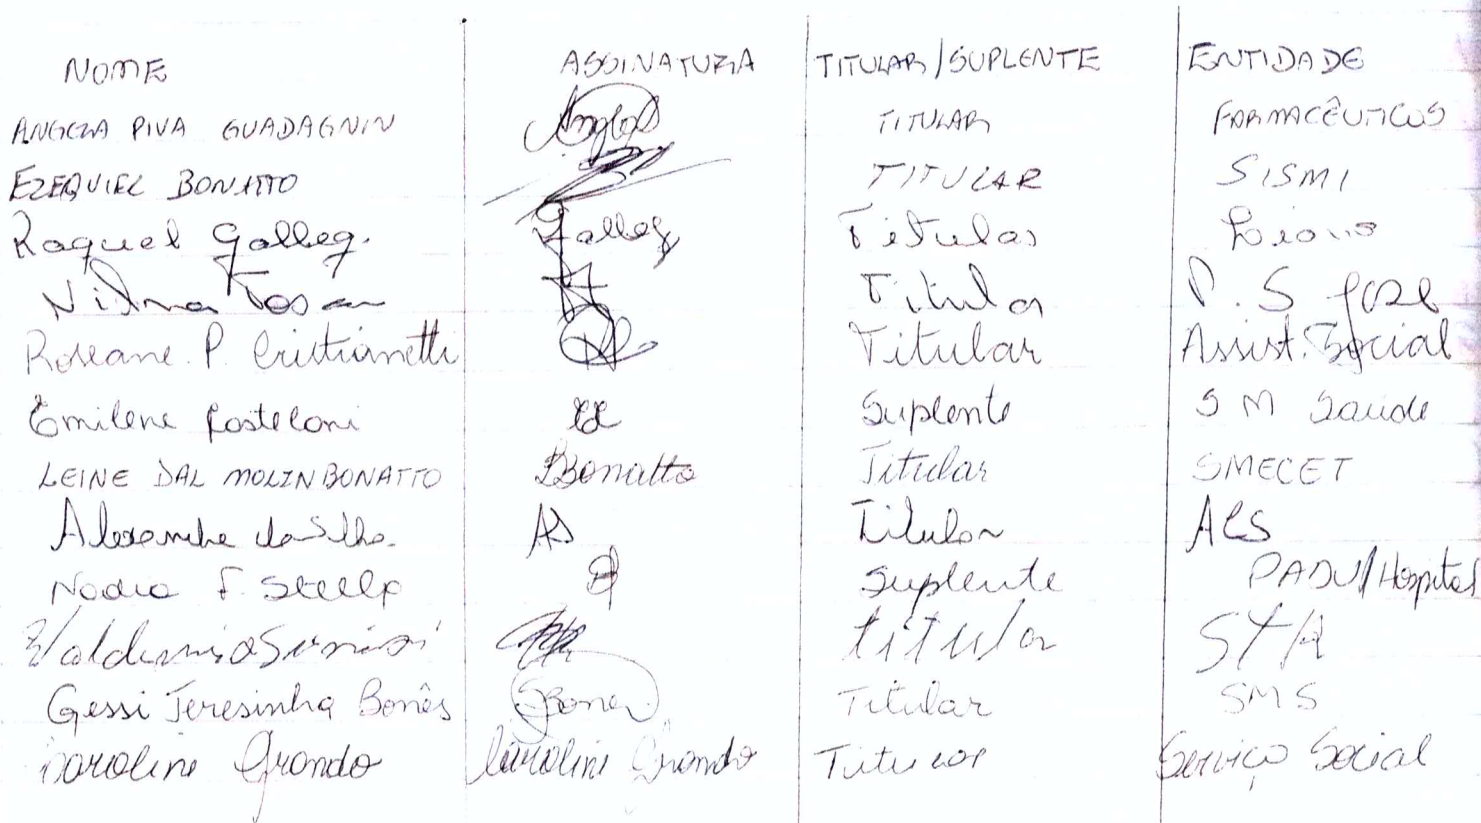 NOME ASSINATURA TITULAR/SUPLENTE ENTIDADE
ANGELA PIVA GUADAGNIN TITULAR FARMACÊUTICOS
EZEQUIEL BONATTO TITULAR SISMI
Raquel Galleg. Galleg Titular
Nilva Tosan Titular P. S José
Roseane. P. Cristianetti Titular Assist. Social
Emilene Posteloni Suplente S M Saúde
LEINE DAL MOLIN BONATTO LBonatto Titular SMECET
Alexandre da Silva. AS Titular ACS
Nadia F. Suplente PADU/Hospital
titular STR
Gessi Teresinha Bonês GBones. Titular SMS
Caroline Grando Caroline Grando Titular Serviço Social